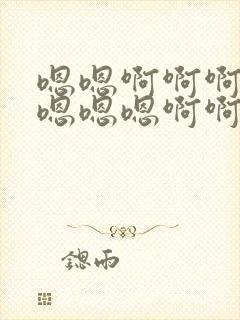 嗯嗯啊啊啊
嗯嗯嗯啊啊
鍶雨